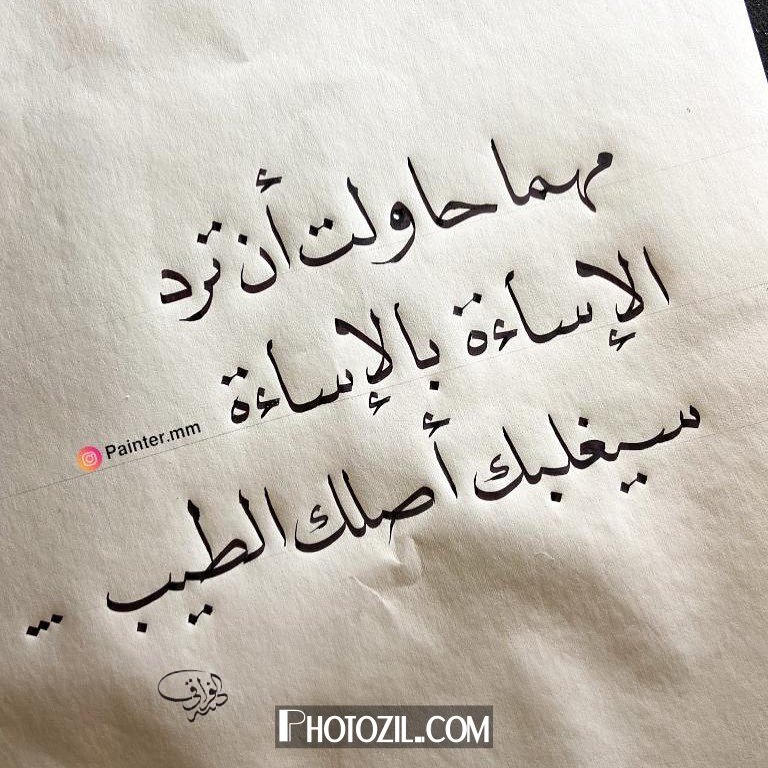 مهما حاولت أن ترد
الإساءة بالإساءة
سيغلبك أصلك الطيب ...
Painter.mm
PHOTOZIL.COM